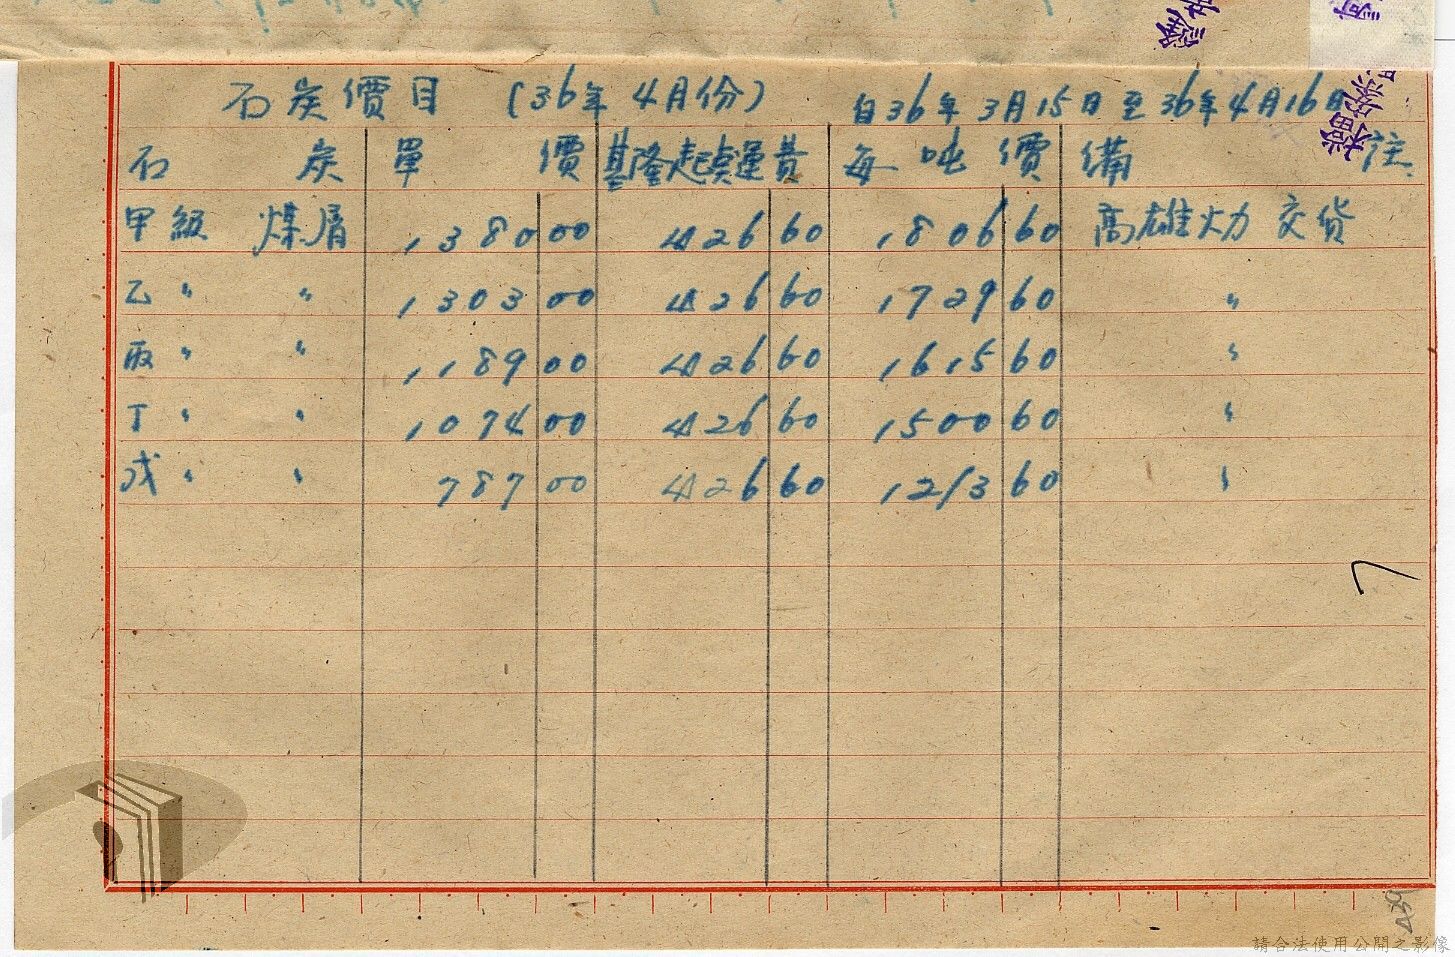 石炭價目 (36年4月份) 自36年3月15日至36年4月16日
石炭 單價 基隆起運費 每吨價 備註
甲級 煤屑 1380 00 426 60 1806 60 高雄火力 交货
乙 〃 〃 1303 00 426 60 1729 60 〃
丙 〃 〃 1189 00 426 60 1615 60 〃
丁 〃 〃 1074 00 426 60 1500 60 〃
戊 〃 〃 787 00 426 60 1213 60 〃
請合法使用公開之影像